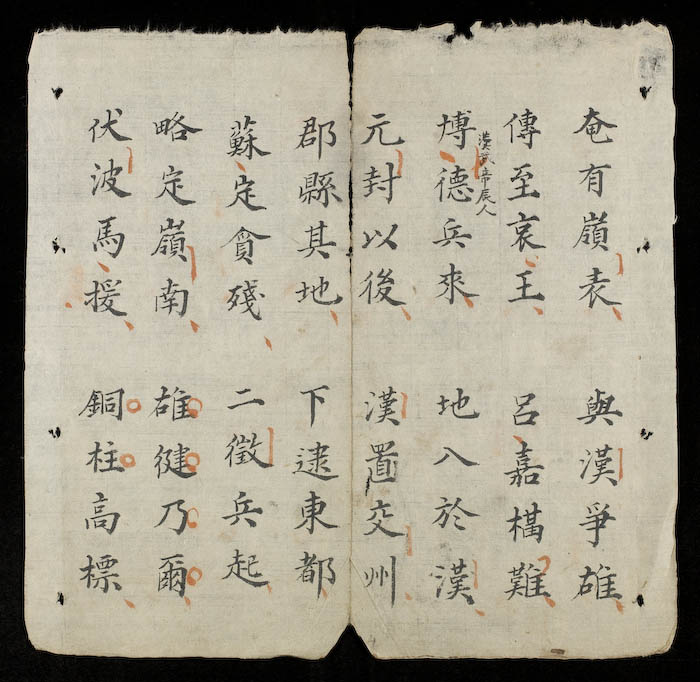 奄有嶺表 與漢爭雄
傳至哀王 呂嘉構難
愽德兵來 地入於漢
漢武帝辰人
元封以後 漢置交州
郡縣其地 下逮東都
蘇定貪殘 二徵兵起
略定嶺南 雄健乃爾
伏波馬援 銅柱高標